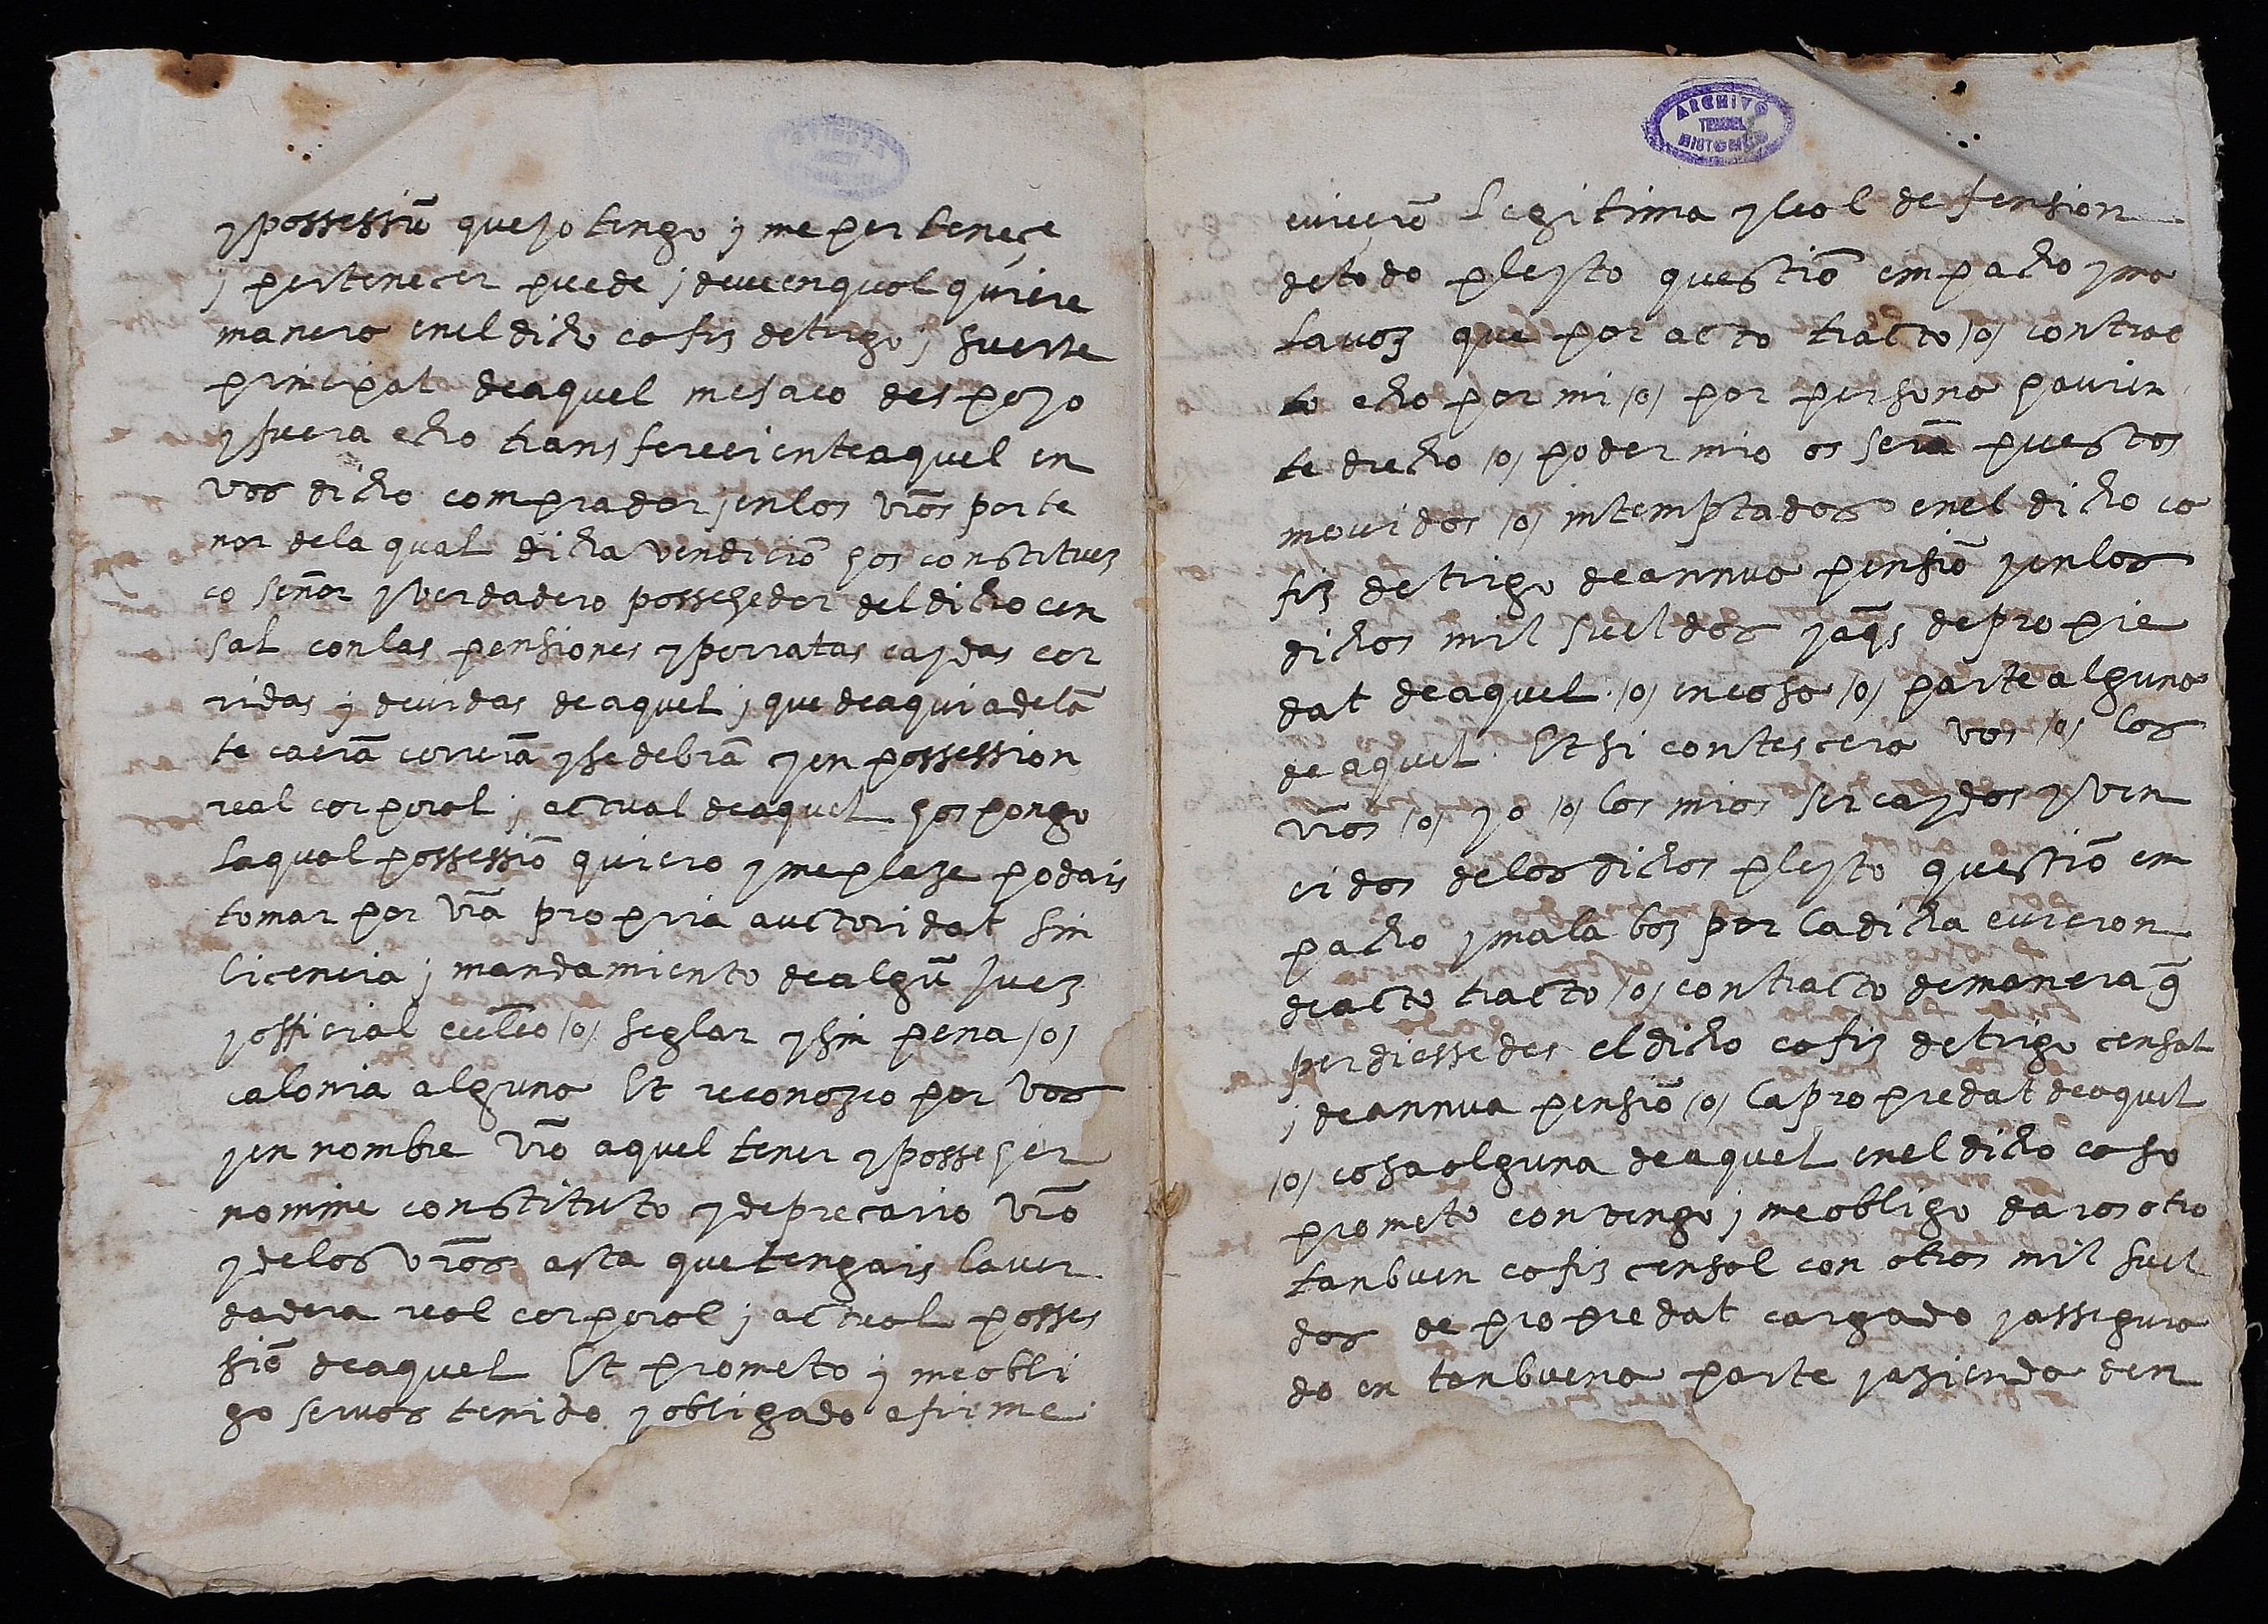 y possessiō que yo tengo y me perteneçe
y pertenecer puede y deue en qual quiere
manera en el dicho cafiz de trigo y suerte
principal de aquel me saco despojo
y fuera echo transfereciente aquel en
vos dicho comprador y en los vr̄os por te
nor de la qual dicha vendiciō hos constituez
co señor y verdadero possehedor del dicho cen
sal con las pensiones y porratas caydas cor
ridas y deuidas de aquel y que de aqui adelā
te caerā correrā y se debrā y en possession
real corporal y actual de aquel hos pongo
la qual possessiō quiero y me plaze podais
tomar por vr̄a propria auctoridat sin
licencia y mandamiento de algū Juez
y official eccl̄co /o/ seglar y sin pena /o/
calonia alguna Et reconozco por vos
y en nombre vr̄o aquel tener y possehir
nomine constituto y de precario vr̄o
y de los vr̄os asta que tengais la ver
dadera real corporal y actual posses
siō de aquel Et prometo y me obli
go seruos tenido y obligado a firme
ARCHIVO
TERUEL
HISTORICO
euicciō legitima y leal defension
de todo pleyto questiō empacho y ma
la voz que por acto tracto /o/ contrac
to echo por mi /o/ por persona hauien
te drecho /o/ poder mio os serā puestos
mouidos /o/ intemptados en el dicho ca
fiz de trigo de annua pensiō y en los
dichos mil sueldos jaq̄s de propie
dat de aquel /o/ en cosa /o/ parte alguna
de aquel. Et si contescera vos /o/ los
vr̄os /o/ yo /o/ los mios ser caydos y ven
cidos de los dichos pleyto questiō em
pacho y mala boz por la dicha euiccion
de acto tracto /o/ contracto de manera q̄
perdiessedes el dicho cafiz de trigo censal
y de annua pensiō /o/ la propriedat de aquel
/o/ cosa alguna de aquel en el dicho caso
prometo conuengo y me obligo daros otro
tan buen cafiz censal con otros mil suel
dos de propriedat cargado y assegura
do en tan buena parte y azienda den